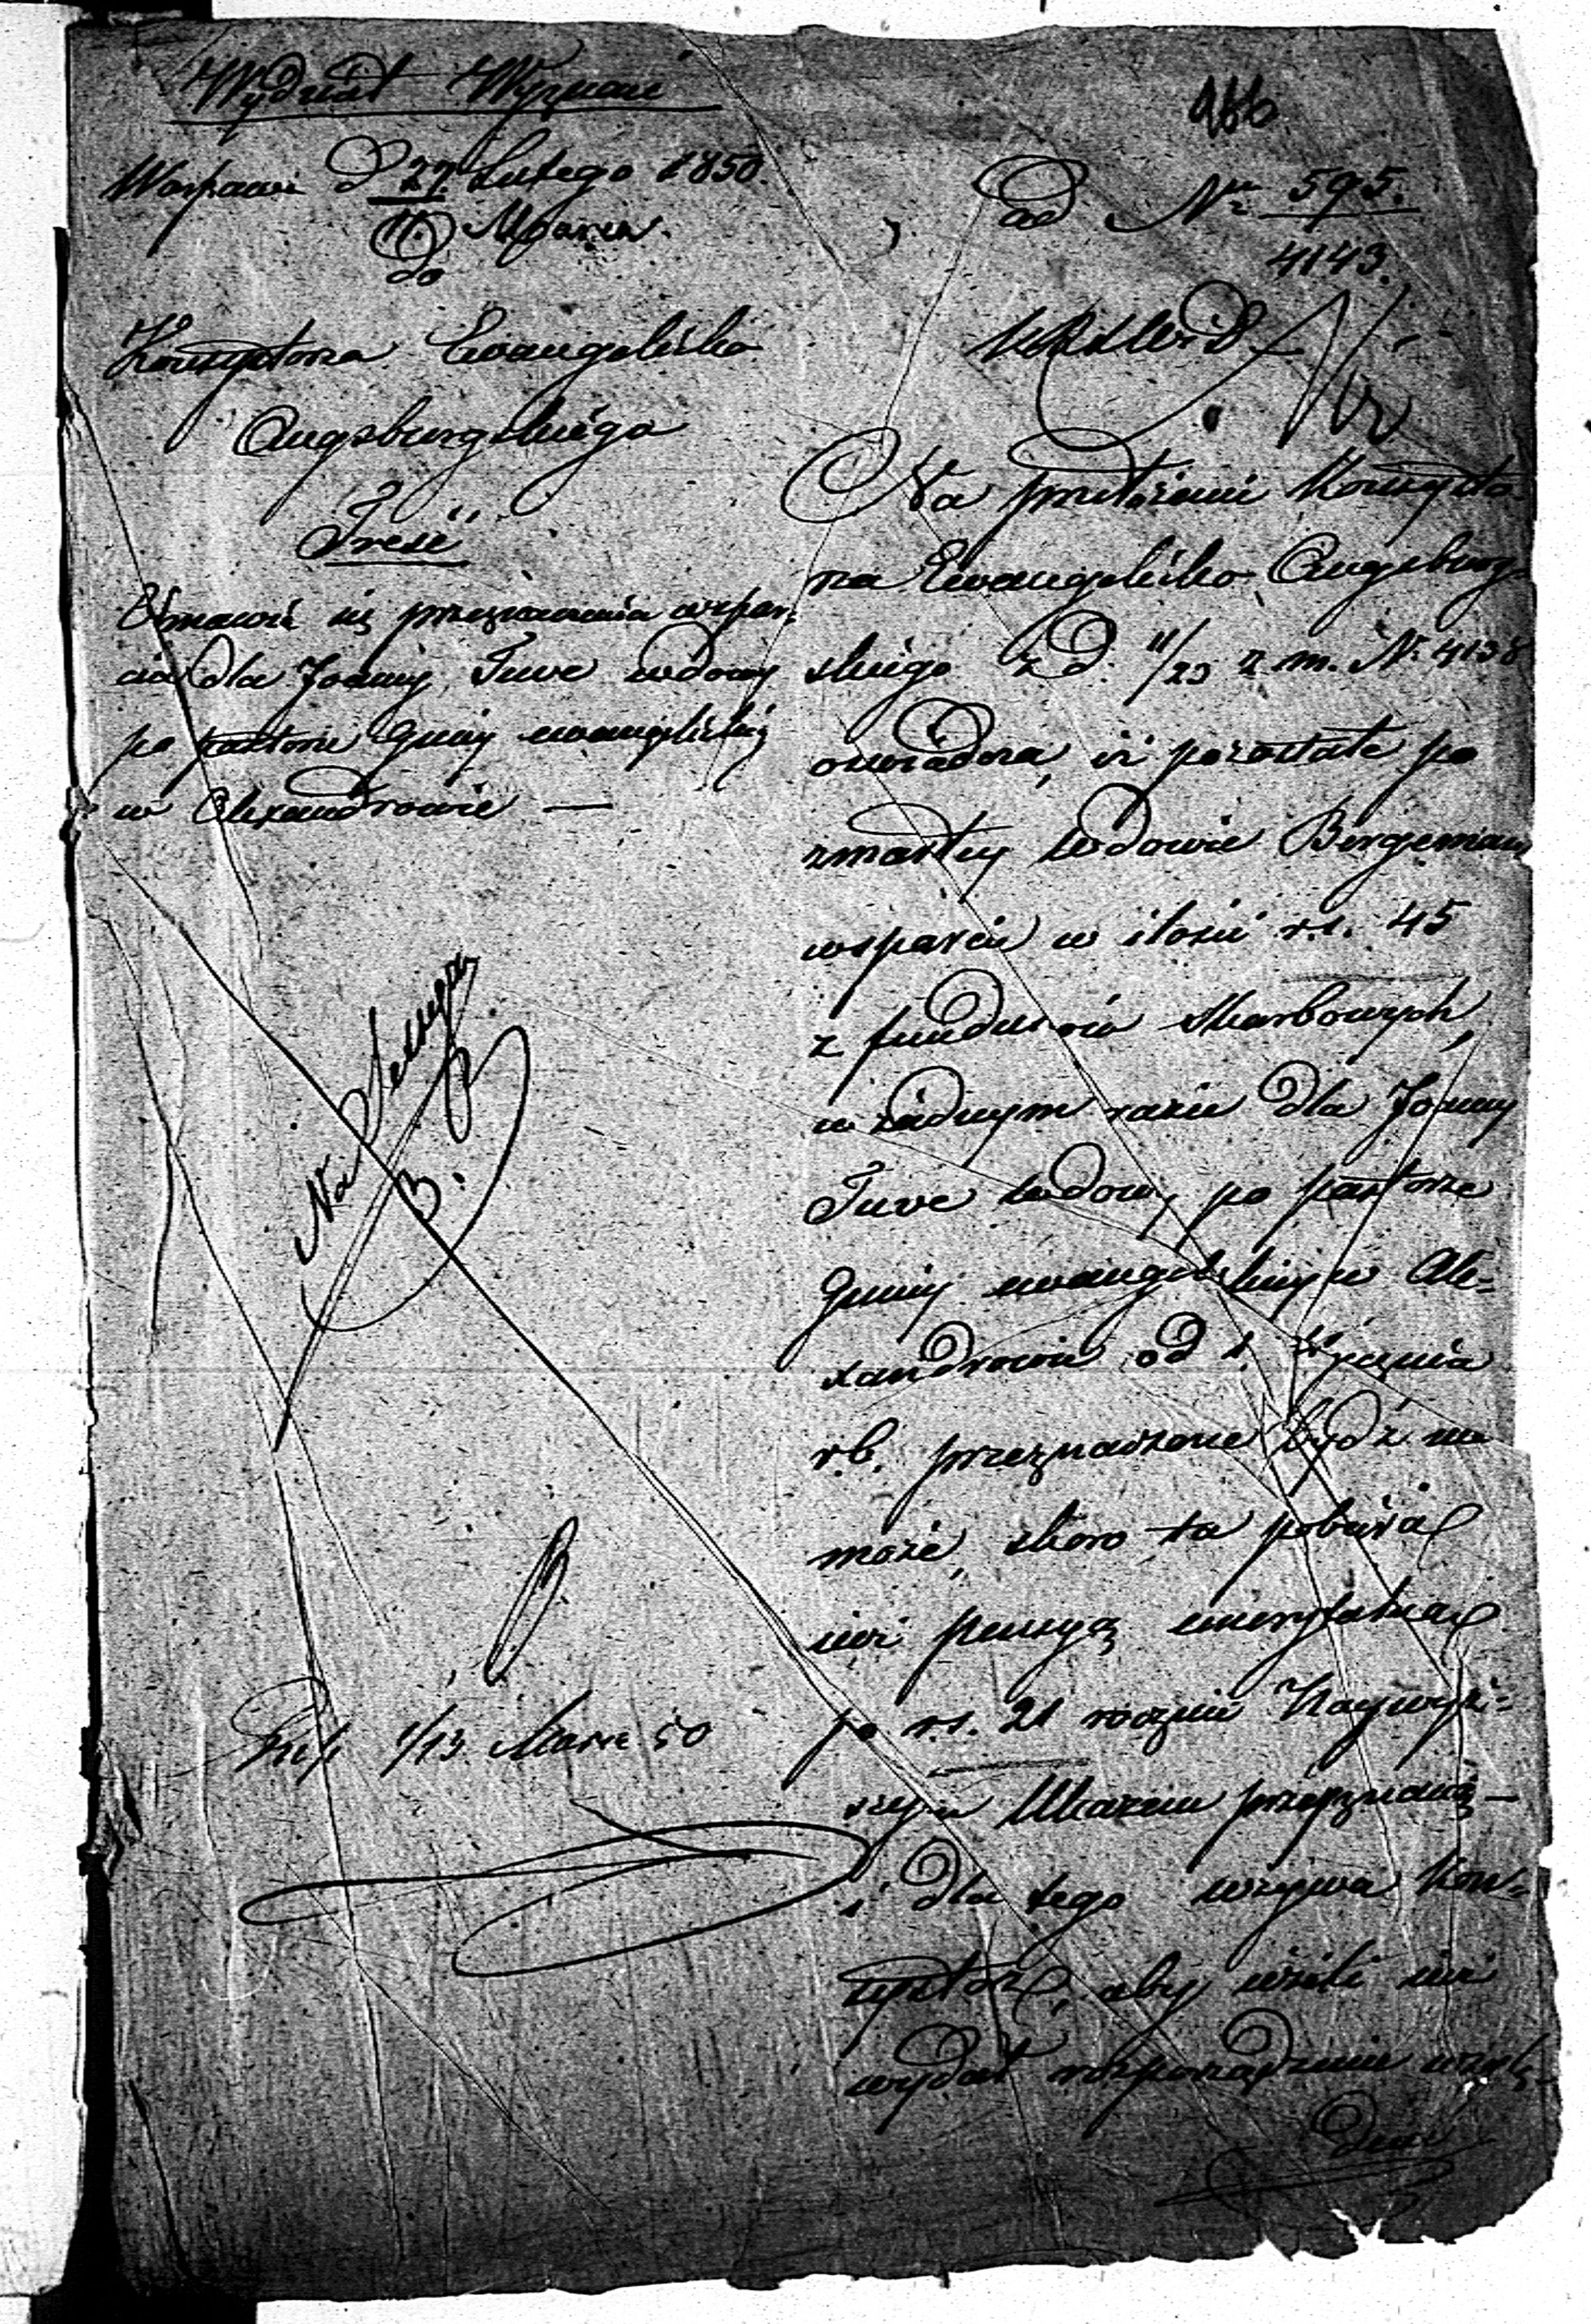 Wydział Wyznań
266
Warszawa d. 27 Lutego 1850.
11. Marca
do
ad Nr 595.
4143.
Konsystorza Ewangelicko
Augsburgskiego
Treść
Odmawia się przeznaczenia wspar-
cia dla Joanny Tuve wdowy
po pastorze gminy ewangelickiej
w Alexandrowie —
Na przełożenie Konsysto-
rza Ewangelicko Augsburg-
skiego z d. 11/23 z. m. Nr
oświadcza, iż pozostałe po
zmarłej wdowie Bergemann
wsparcie w ilości r.s. 45
z funduszów skarbowych,
w żadnym razie dla Joanny
Tuve wdowy po pastorze
gminy ewangelickiej w Ale-
xandrowie od 1. Stycznia
r.b. przeznaczone bydź nie
może, skoro ta pobiera
już pensyą emerytalną
po r.s. 21 rocznie Najwyż-
szym Ukazem przyznaną —
i dla tego wzywa Kon-
systorz, aby jeżeli już
wydał rozporządzenie wzglę-
dem
Na Sessyą
B.
1/13 Marca 50